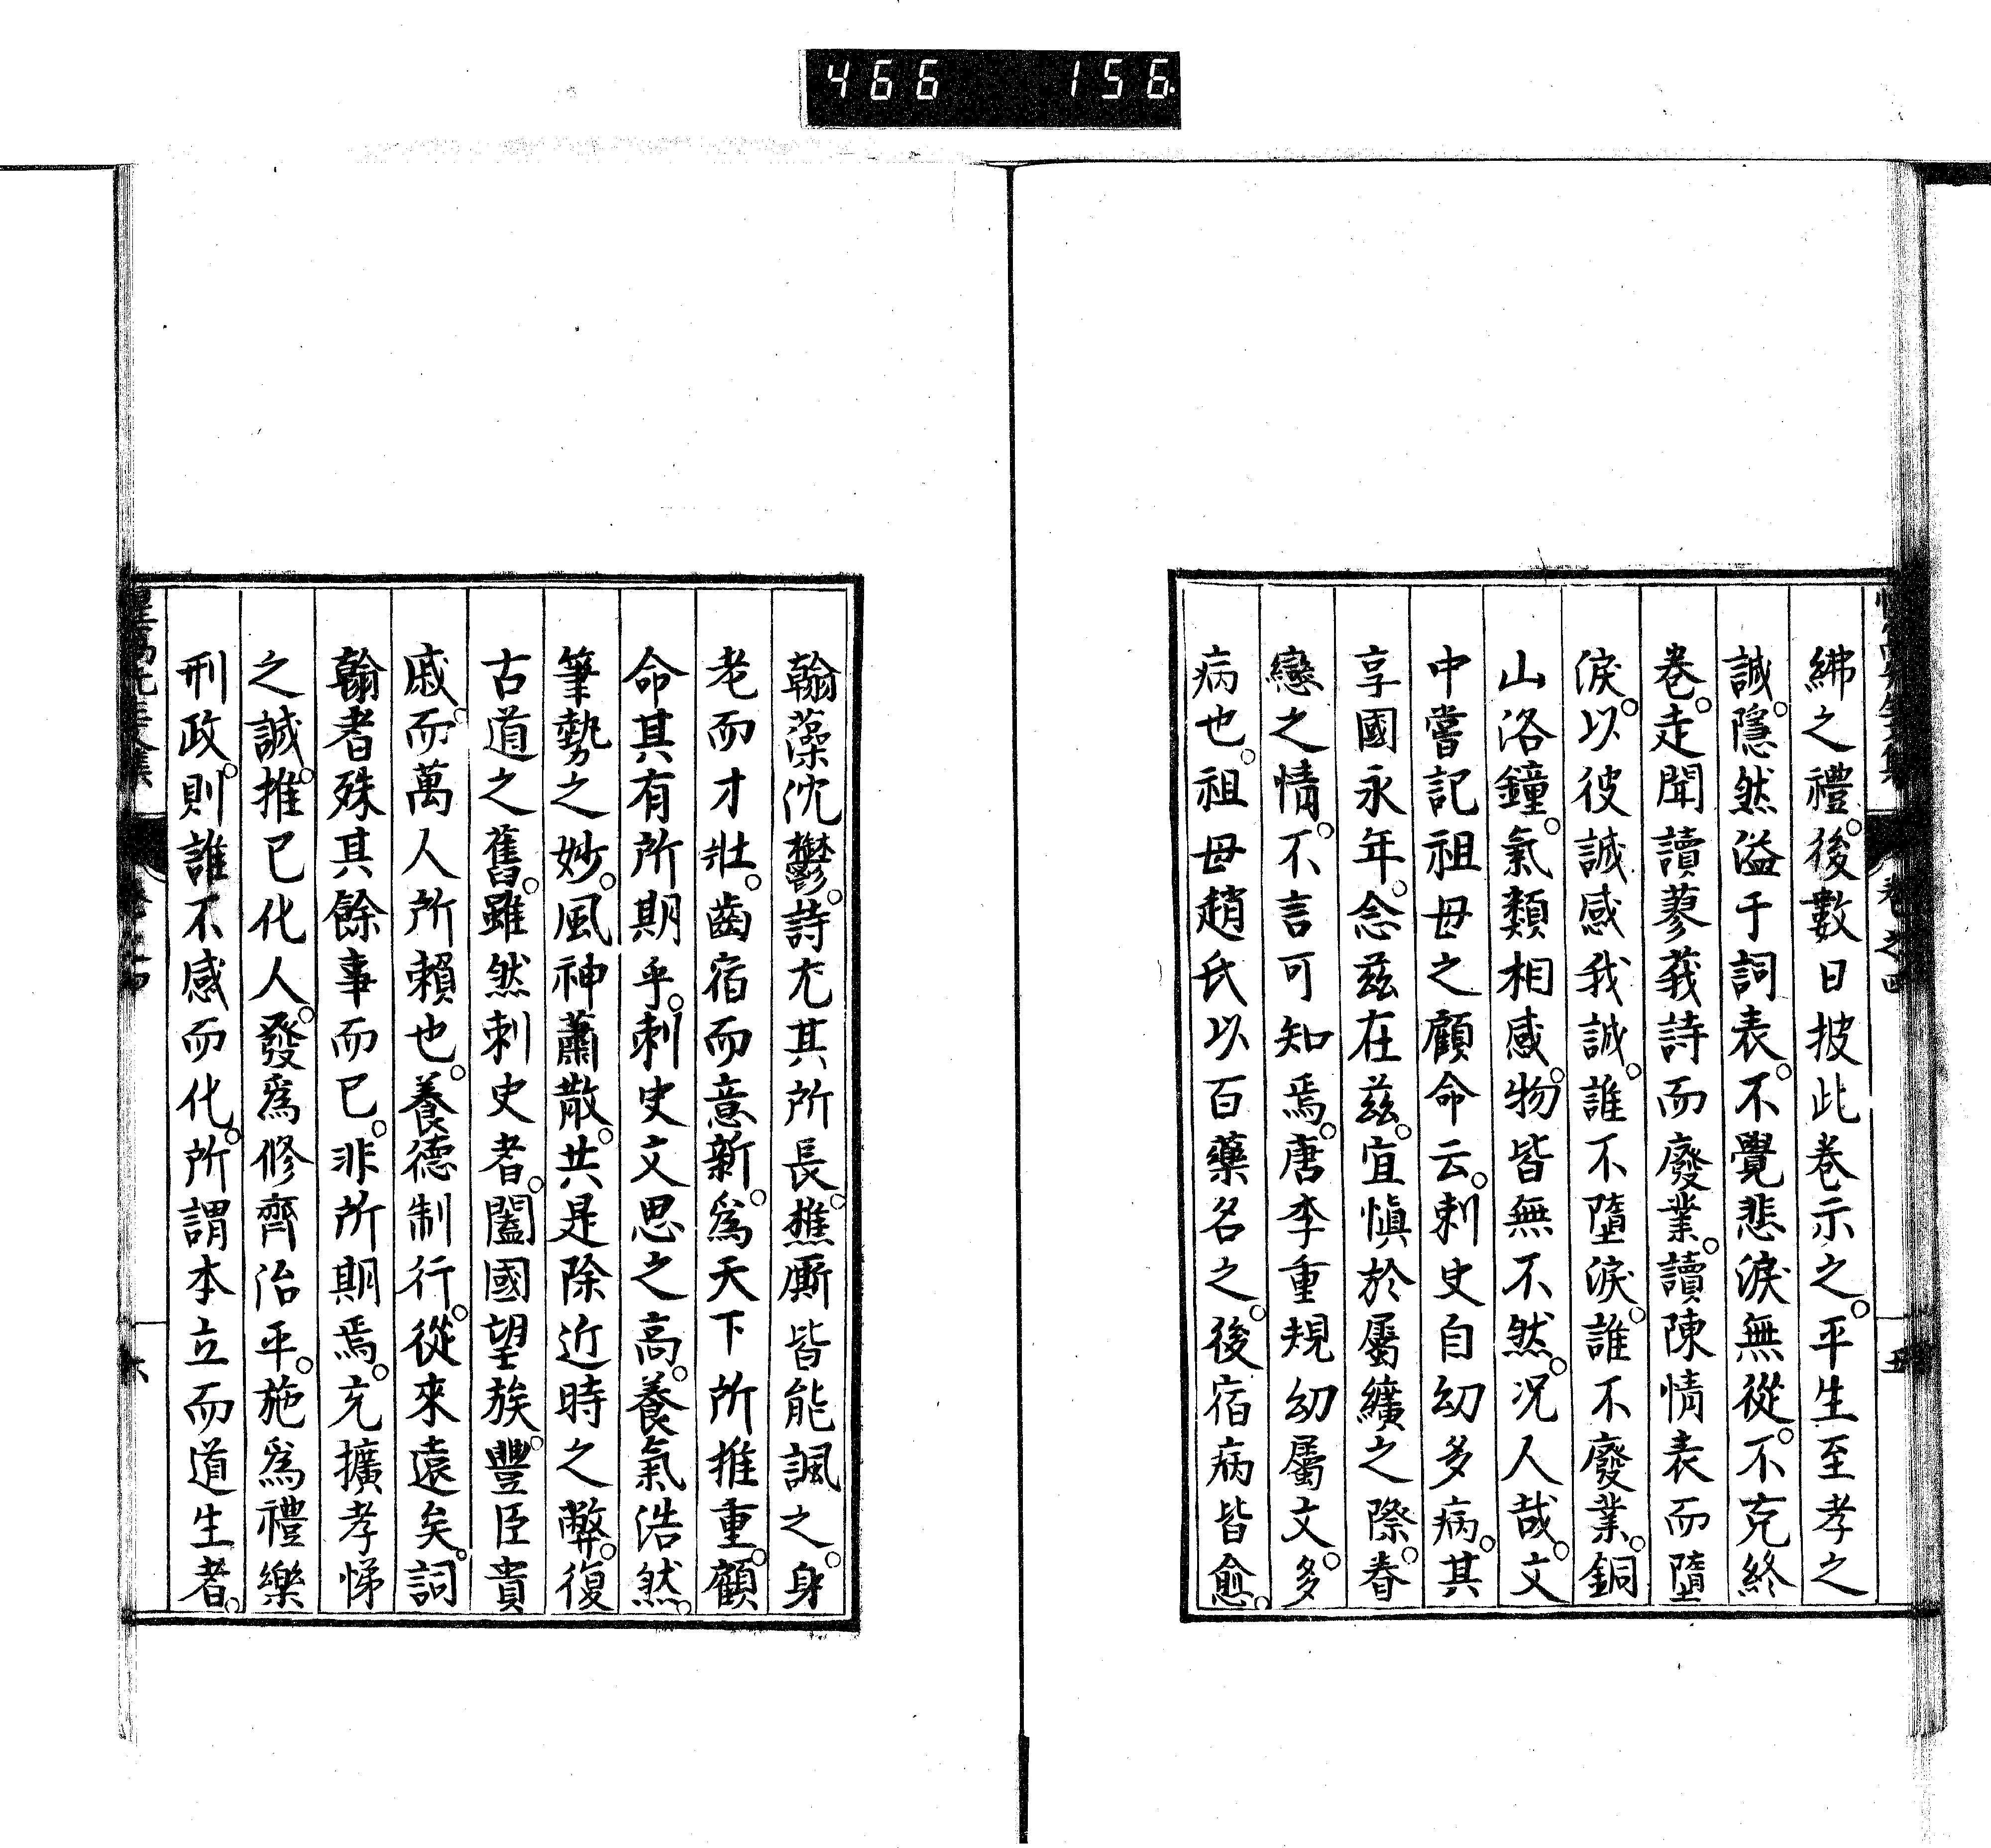 466 156.
紼之禮。後數日披此卷示之。平生至孝之
誠。隱然溢于詞表。不覺悲淚無從。不克終
卷。走聞讀蓼莪詩而廢業。讀陳情表而墮
淚。以彼誠感我誠。誰不墮淚。誰不廢業。銅
山洛鐘。氣類相感。物皆無不然。况人哉。文
中嘗記祖母之顧命云。刺史自幼多病。其
享國永年。念兹在兹。宜愼於屬纊之際。眷
戀之情。不言可知焉。唐李重規幼屬文。多
病也。祖母趙氏以百藥名之。後宿病皆愈。
卷之四
五
翰藻沈鬱。詩尤其所長。樵厮皆能諷之。身
老而才壯。齒宿而意新。爲天下所推重。顧
命其有所期乎。刺史文思之高。養氣浩然。
筆勢之妙。風神蕭散。共是除近時之弊。復
古道之舊。雖然刺史者。闔國望族。豐臣貴
戚。而萬人所賴也。養德制行。從來遠矣。詞
翰者殊其餘事而已。非所期焉。充擴孝悌
之誠。推已化人。發爲修齊治平。施爲禮樂
刑政。則誰不感而化。所謂本立而道生者。
六